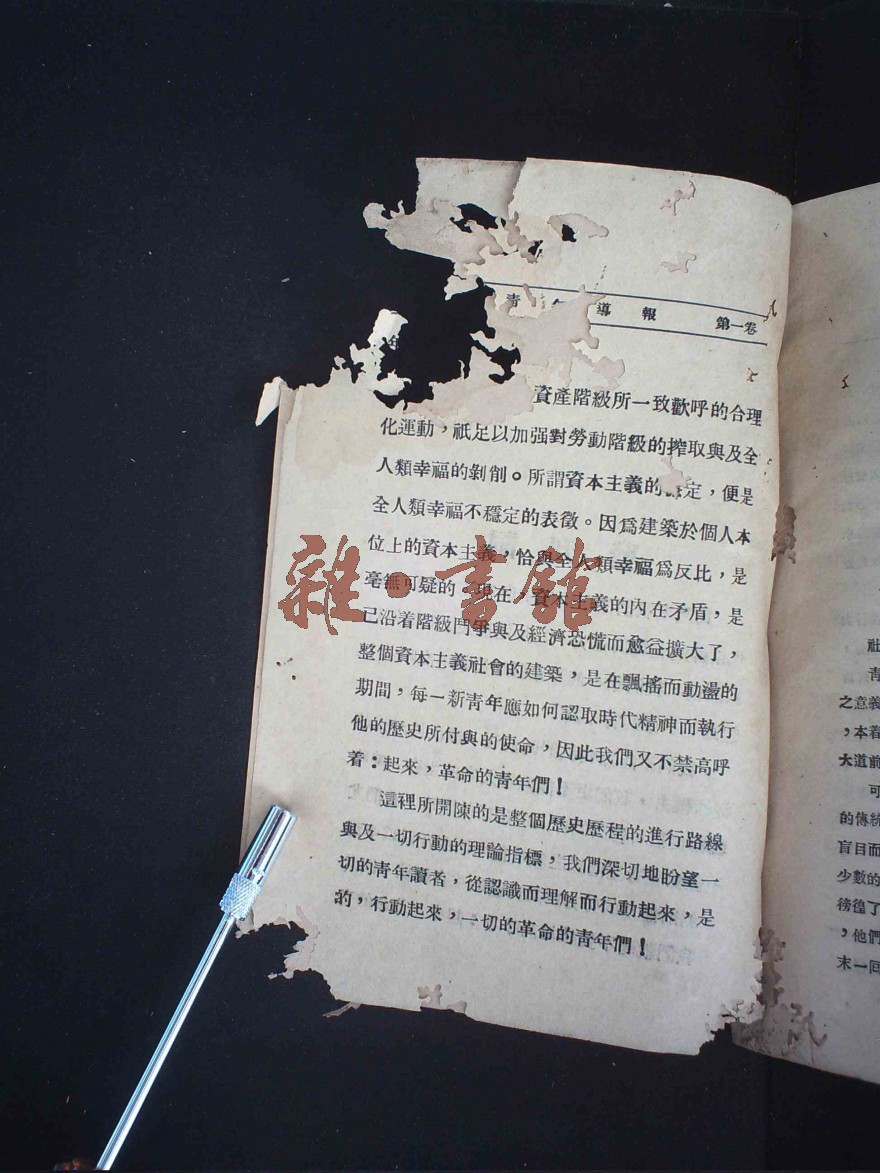 青 導 報 第一卷
資產階級所一致歡呼的合理
化運動，祇足以加强對勞動階級的搾取與及全
人類幸福的剝削。所謂資本主義的定，便是
全人類幸福不穩定的表徵。因爲建築於個人本
位上的資本主義，恰與全人類幸福爲反比，是
毫無可疑的。現在，資本主義的內在矛盾，是
已沿着階級鬥爭與及經濟恐慌而愈益擴大了，
整個資本主義社會的建築，是在飄搖而動盪的
期間，每一新青年應如何認取時代精神而執行
他的歷史所付與的使命，因此我們又不禁高呼
着：起來，革命的青年們！
這裡所開陳的是整個歷史歷程的進行路線
與及一切行動的理論指標，我們深切地盼望一
切的青年讀者，從認識而理解而行動起來，是
的，行動起來，一切的革命的青年們！
社
青
之意義
，本着
大道前
可
的傳統
盲目而
少數的
徬徨了
，他們
末一回
雜·書館